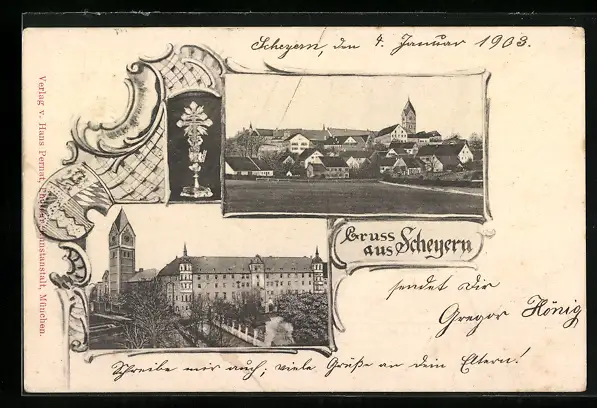 Scheyern, den 4. Januar 1903.
Verlag v. Hans Pernat, Kunstanstalt, München.
Gruss
aus Scheyern
sendet Dir
Gregor König
Schreibe mir auch; viele Grüße an dein Eltern!